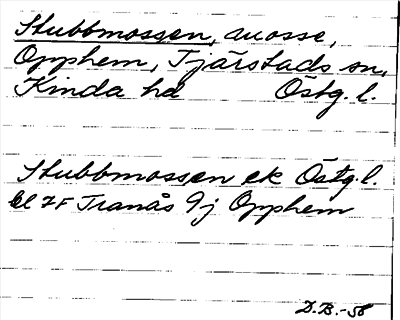 Stubbmossen, mosse,
Opphem, Tjärstads sn,
Kinda hd Östg. l.
Stubbmossen ek Östg. l.
bl 7F Tranås 9j Opphem
D.B.-58